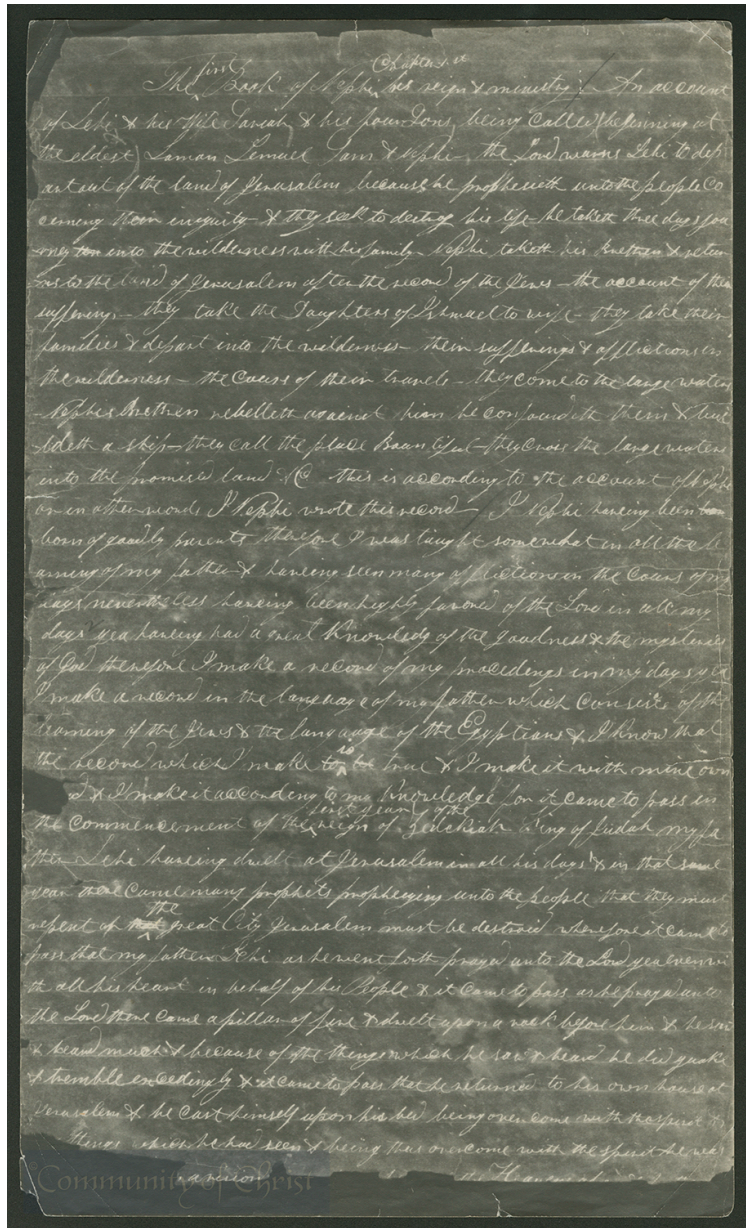 first Chapter 1st
The Book of Nephi his reign & ministry An account
of Lehi & his Wife Sariah & his four Sons being called beginning at
the eldest Laman Lemuel Sam & Nephi the Lord warns Lehi to dep
art out of the land of Jerusalem because he prophesieth unto the people con
cerning their iniquity & they seek to destroy his life he taketh three days jou
rney into the wilderness with his family Nephi taketh his brethren & retur
ns to the land of Jerusalem after the record of the Jews the account of their
sufferings they take the Daughters of Ishmael to wife they take their
families & depart into the wilderness their sufferings & afflictions in
the wilderness the Cours of their travels they come to the large waters
Nephies Brethren rebelleth against him he confoundeth them & bui
ldeth a ship they call the place Bountiful they cross the large waters
into the promised land &C this is according to the account of Nephi
or in other words I Nephi wrote this record I Nephi having been
born of goodly parents therefore I was taught somewhat in all the le
arning of my father & having seen many afflictions in the Cours of my
days nevertheless having been highly favored of the Lord in all my
days yea having had a great Knowledg of the goodness & the mysteries
of God therefore I make a record of my procedings in my days yea
I make a record in the language of my father which consists of the
learning of the Jews & the language of the Egyptians & I know that
the record which I make to be true & I make it with mine own
d & I make it according to my Knowledge for it came to pass in
first year of the
the commencement of the reign of Zedekiah King of Judah my fa
ther Lehi having dwelt at Jerusalem in all his days & in that same
year there came many prophets prophesying unto the people that they must
the
repent or great City Jerusalem must be destroid wherefore it came to
pass that my father Lehi as he went forth prayed unto the Lord yea even wi
th all his heart in behalf of his People & it came to pass as he prayed unto
the Lord there came a pillar of fire & dwelt upon a rock before him & he saw
& heard much & because of the things which he saw & heard he did quake
& tremble excedingly & it came to pass that he returned to his own house at
Jerusalem & he cast himself upon his bed being overcome with the spirit &
things which he had seen & being thus overcome with the spirit he was
a vision Heavens
Community of Christ